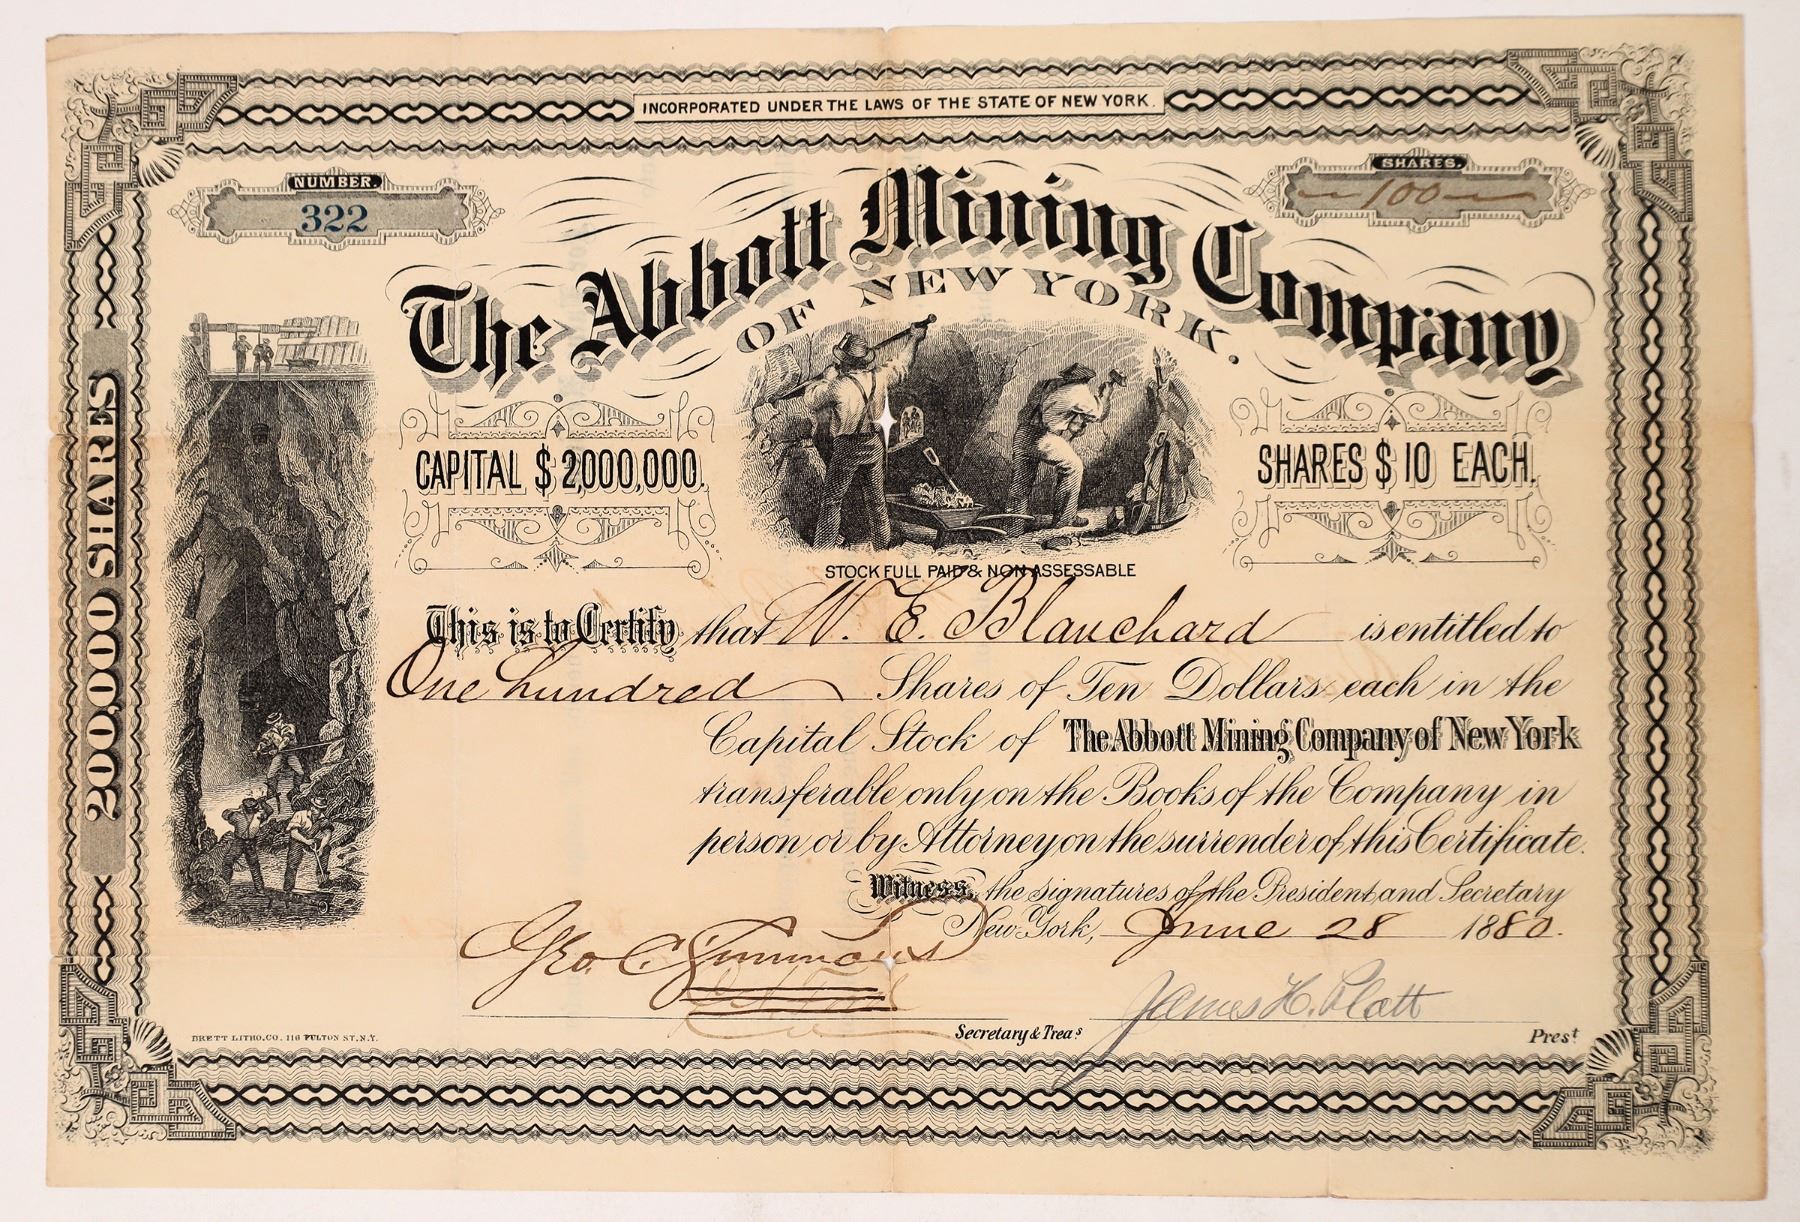 INCORPORATED UNDER THE LAWS OF THE STATE OF NEW YORK.
NUMBER.
322
SHARES.
100
The Abbott Mining Company
OF NEW YORK.
200,000 SHARES
CAPITAL $2,000,000.
SHARES $10 EACH.
STOCK FULL PAID & NON ASSESSABLE
This is to Certify that W. E. Blanchard is entitled to
One hundred Shares of Ten Dollars each in the
Capital Stock of The Abbott Mining Company of New York
transferable only on the Books of the Company in
person or by Attorney on the surrender of this Certificate.
Witness, the signatures of the President and Secretary
New York, June 28 1880.
Geo. C. Simmons
James H. Platt
BRETT LITHO. CO. 116 FULTON ST. N.Y.
Secretary & Treas.
Prest